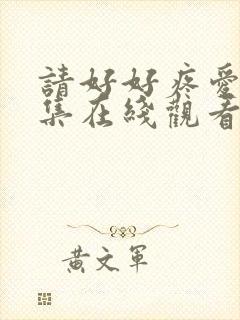 請好好疼愛
集在綫觀看
黃文軍